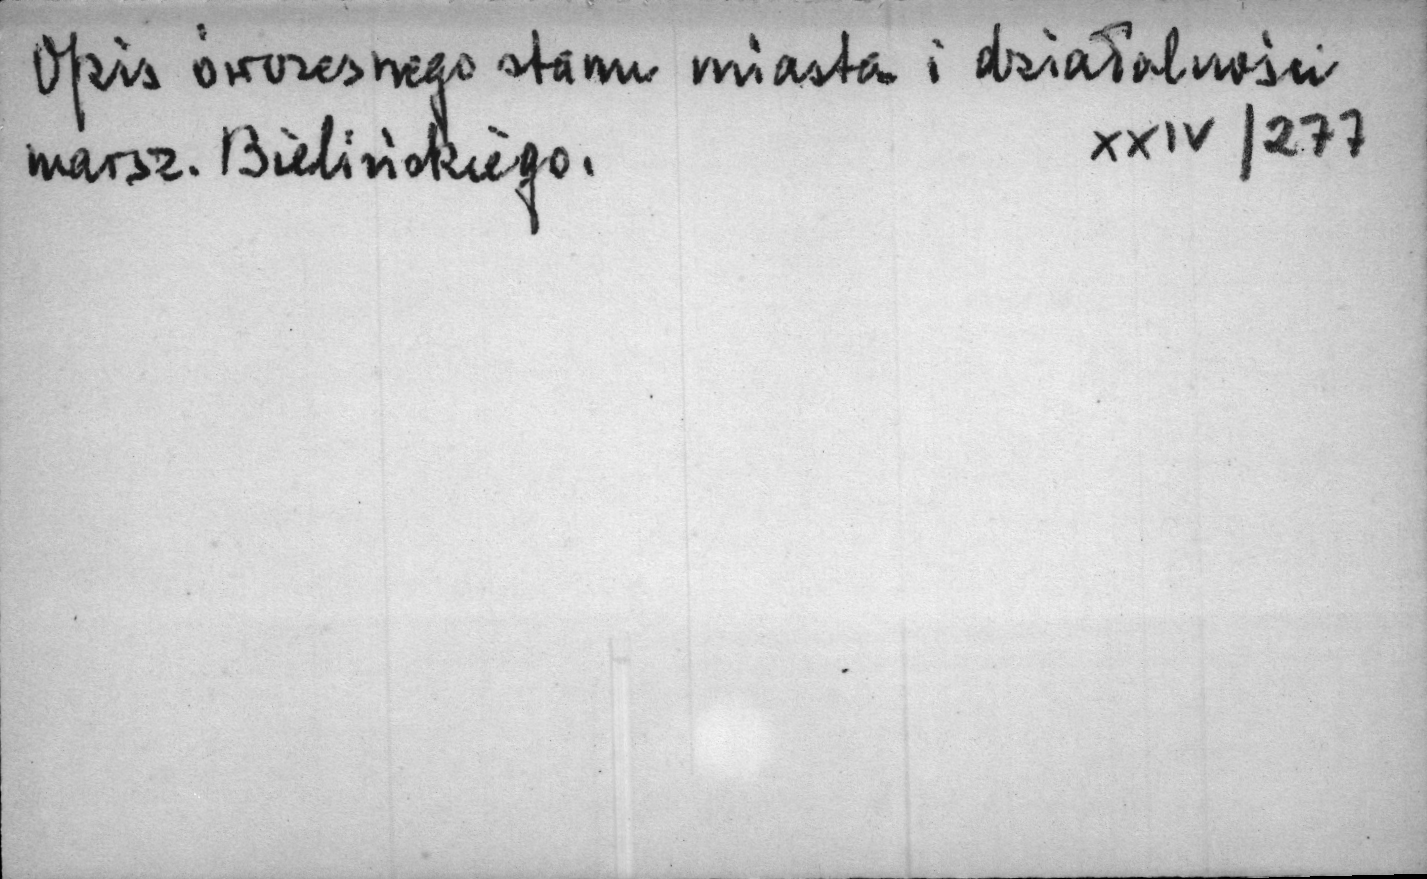 Opis ówczesnego stanu miasta i działalności
marsz. Bielińskiego. XXIV/277